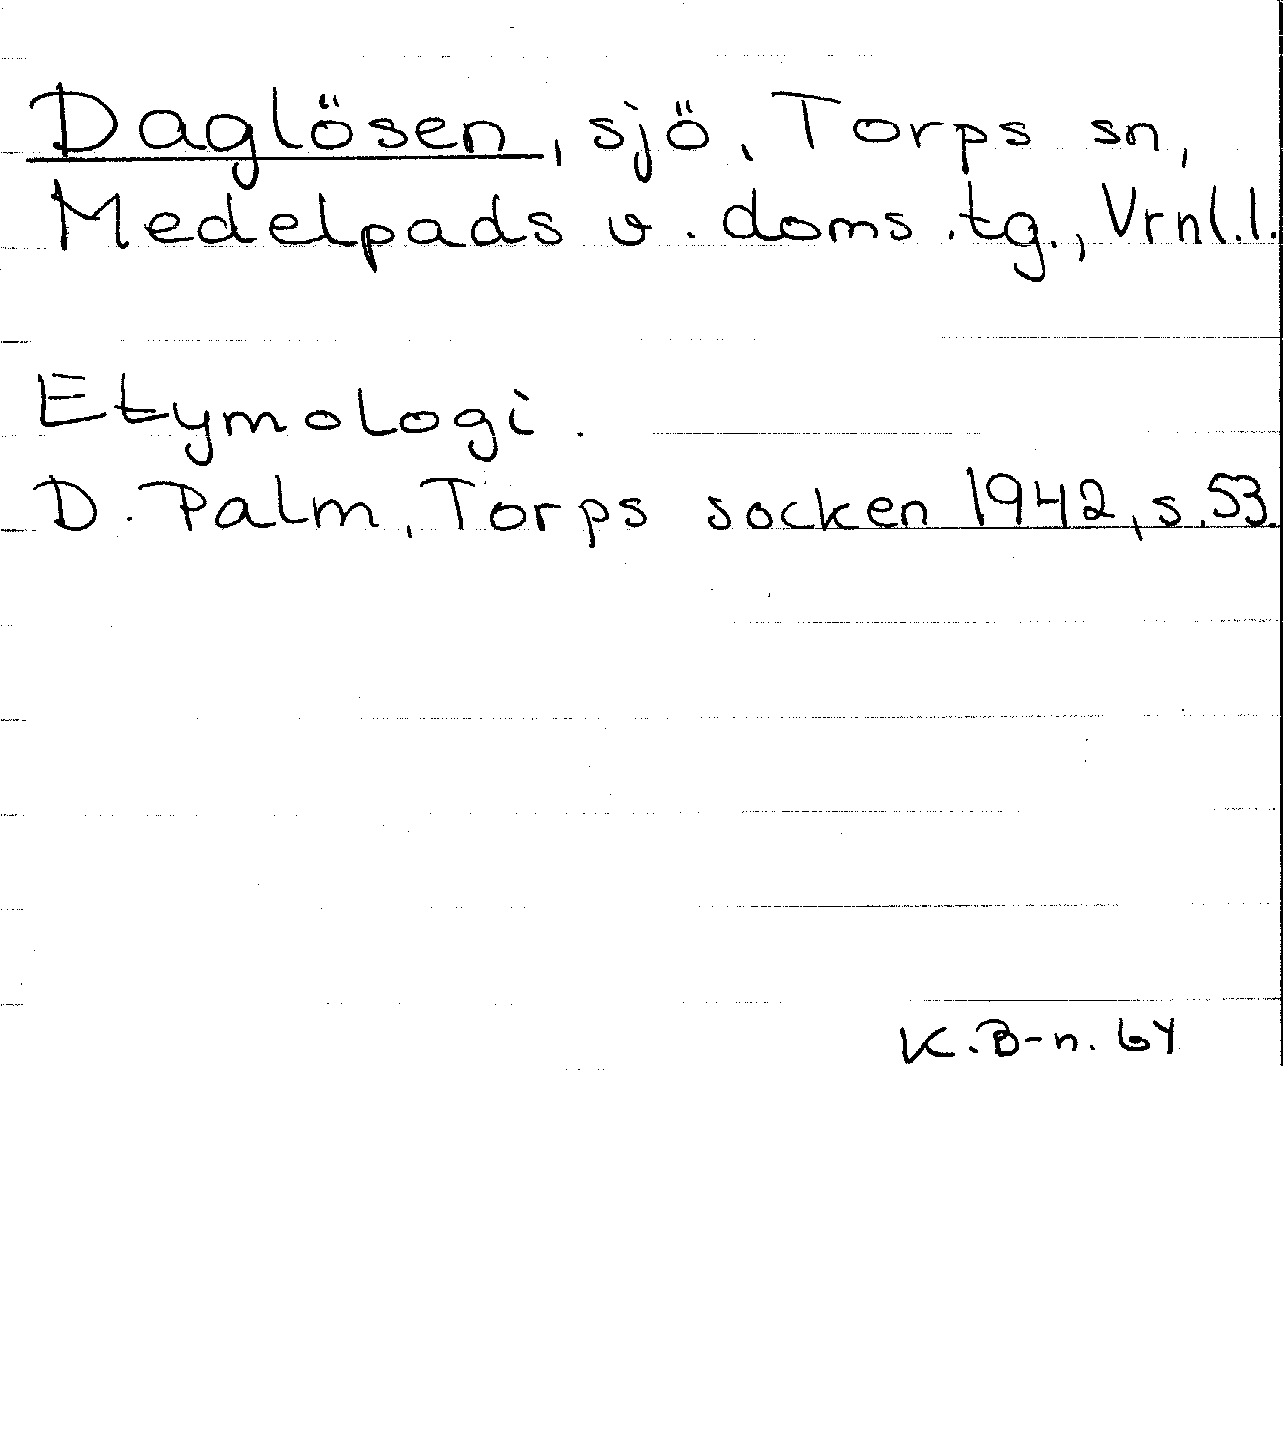 Daglösen, sjö, Torps sn,
Medelpads v. doms.tg., Vrnl.l.
Etymologi.
D. Palm, Torps socken 1942, s.53.
K.B-n. 64